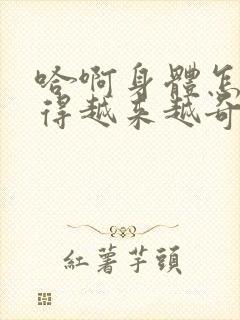 哈啊身體怎
得越来越奇
紅薯芋頭